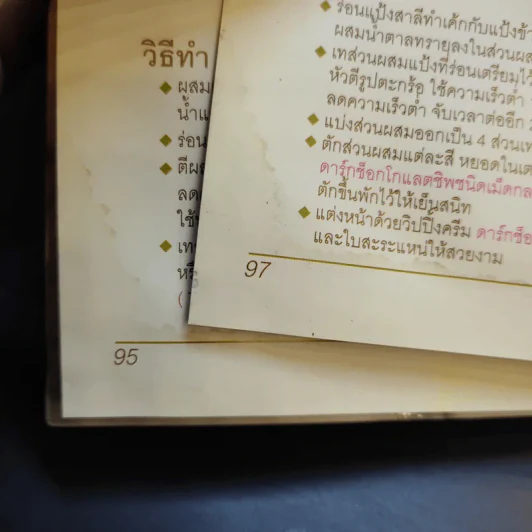 วิธีทำ
ผสม
น้ำ
ร่อน
ลด
ใช้
95
ร่อนแป้งสาลีทำเค้กกับแป้ง
ผสมน้ำตาลทรายลงในส่วน
เทส่วนผสมแป้งที่ร่อนเตรียมไว้
หัวตีรูปตะกร้อ ใช้ความเร็วต่ำ
ลดความเร็วต่ำ จับเวลาต่ออีก
แบ่งส่วนผสมออกเป็น 4 ส่วน
ตักส่วนผสมแต่ละสี หยอดใน
ดาร์กช็อกโกแลตชิพชนิดเม็ด
ตักขึ้นพักไว้ให้เย็นสนิท
แต่งหน้าด้วยวิปปิ้งครีม ดาร์กช็อ
และใบสะระแหน่ให้สวยงาม
97